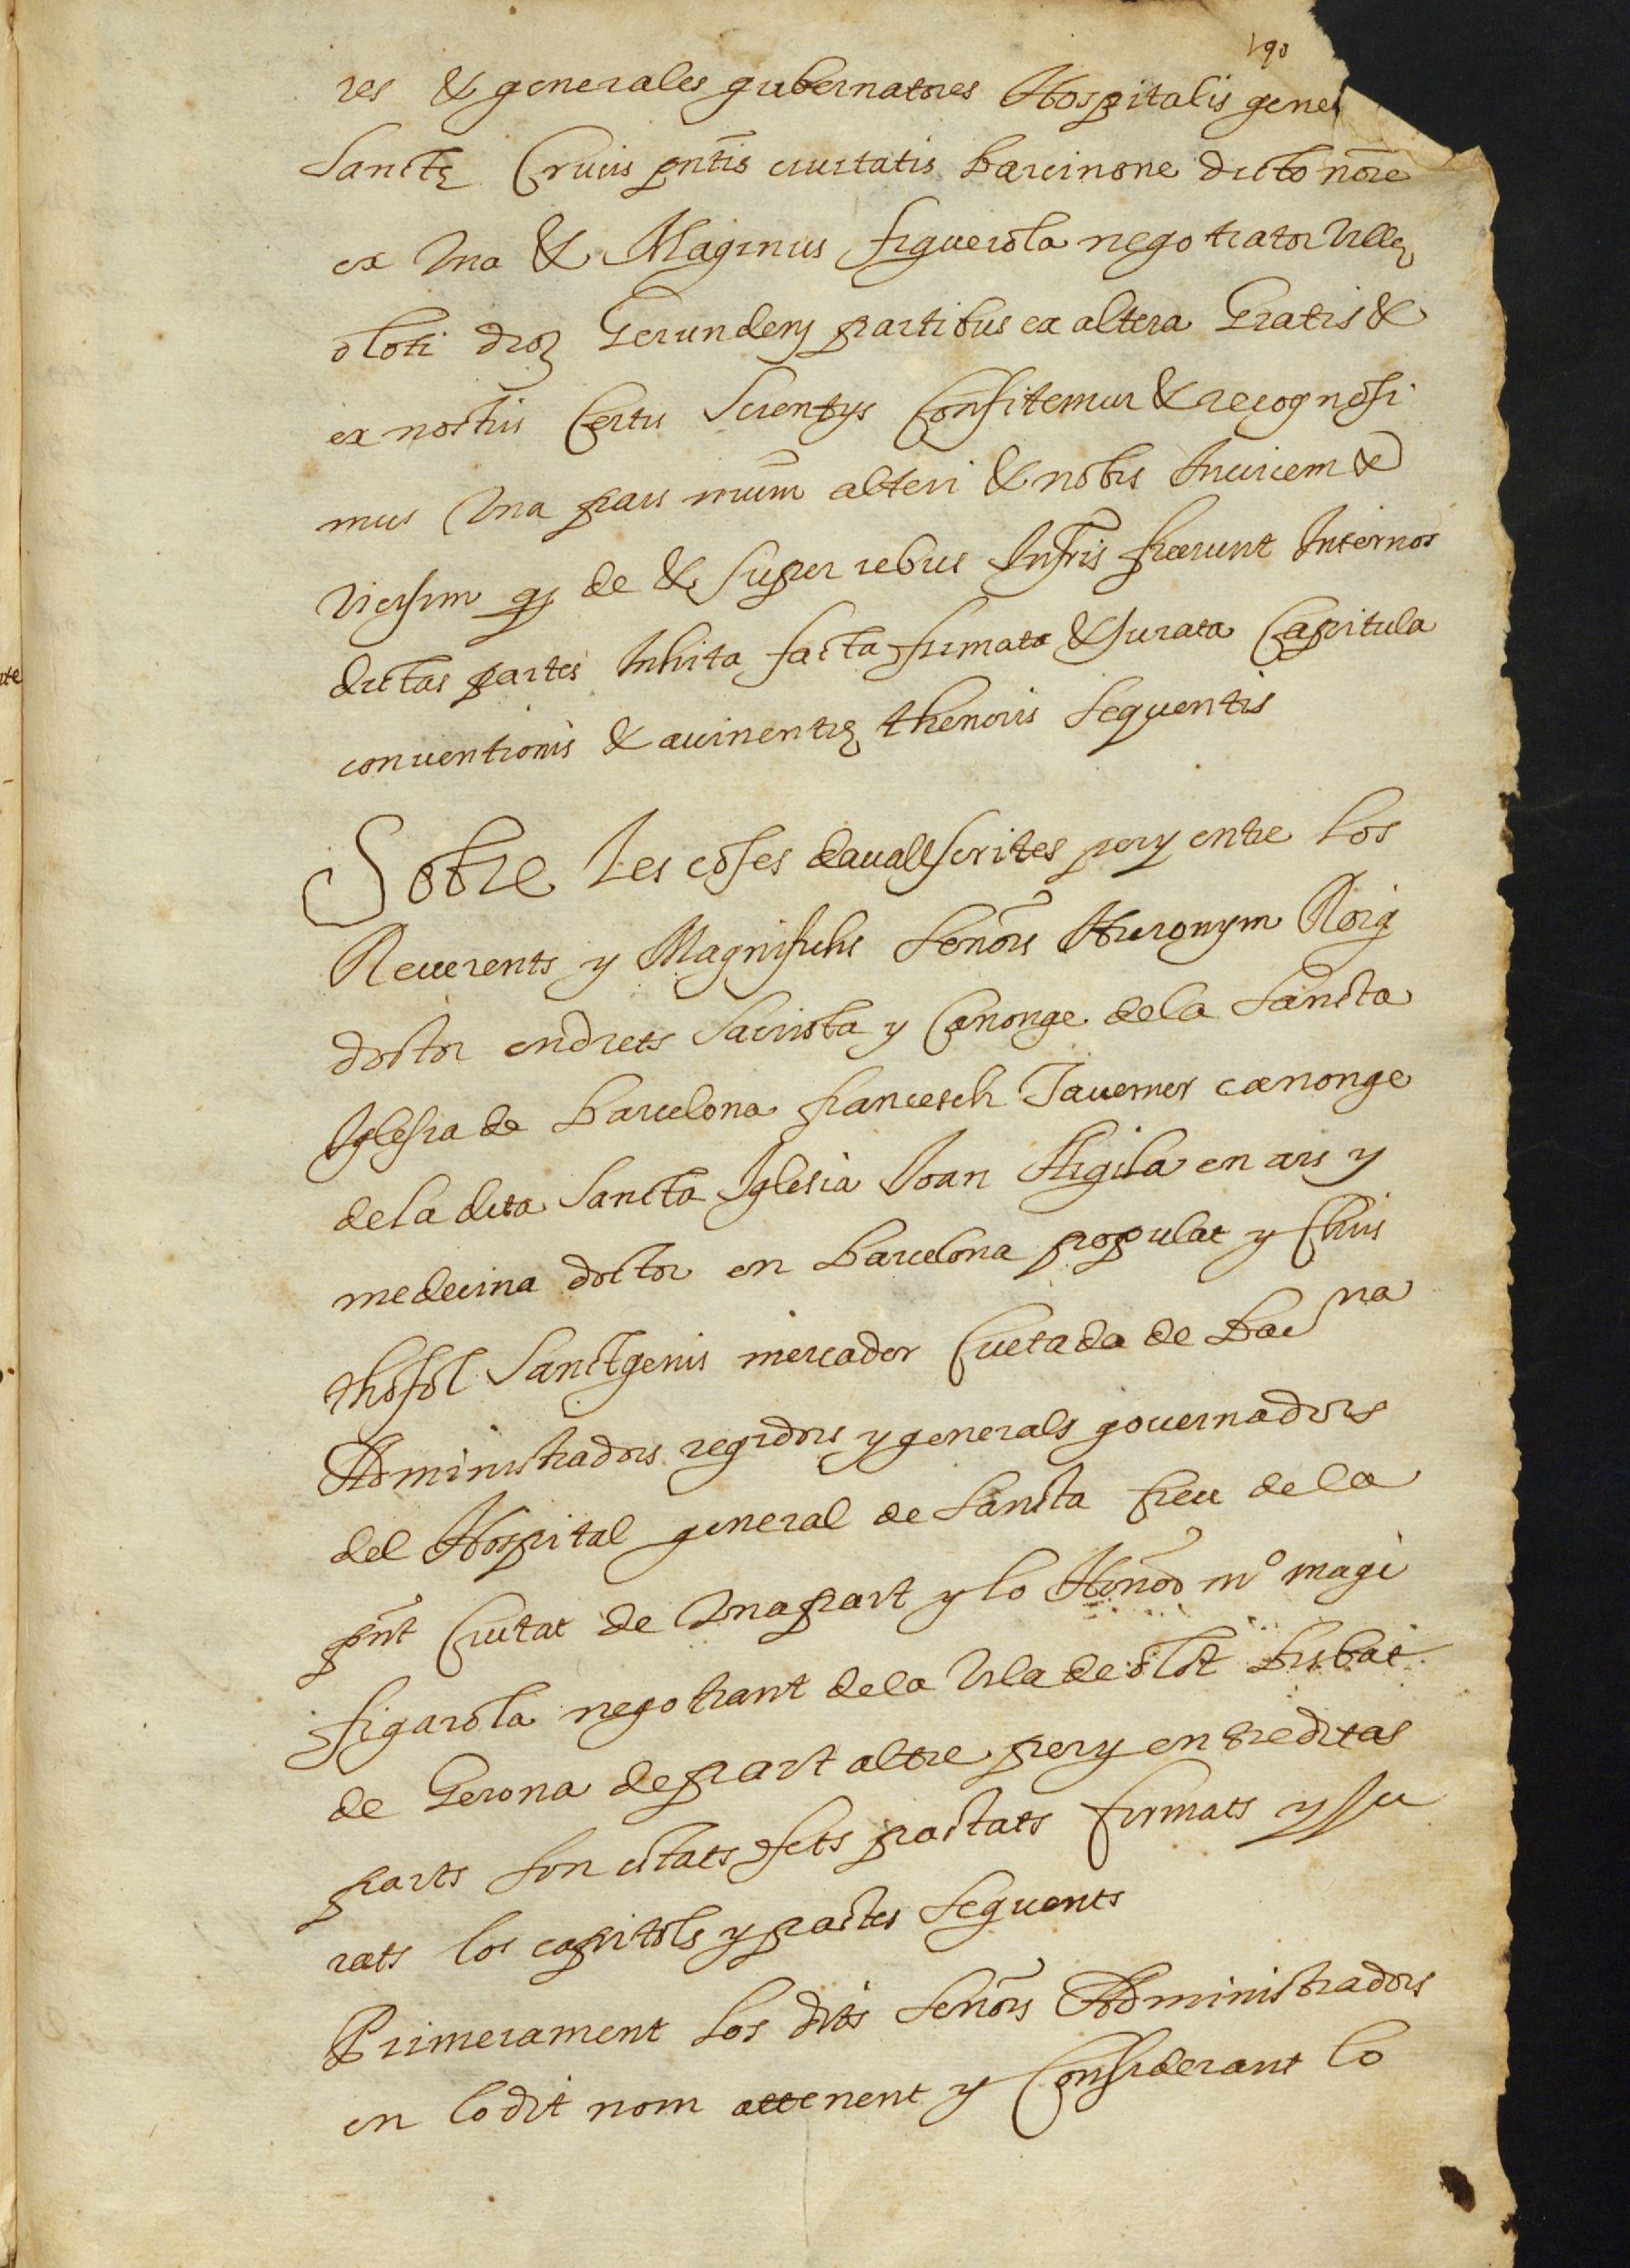 190
res & generales gubernatores Hospitalis gene
Sanctę Crucis pñtis ciuitatis Barcinone dicto nõie
ex una & Maginus figuerola negotiator Villę
oloti dioc Gerundeñ partibus ex altera Gratis &
ex nostris Certis Scientijs Confitemur & recognosci
mus Una pars nrũm alteri & nobis Inuicem &
Vicissim q de & super rebus Infris fuerunt Internos
dictas partes Inhita facta firmata & Jurata Capitula
conuentionis & auinentię thenoris sequentis
Sobre Les coses dauall scrites per y entre Los
Reuerents y Magnifichs señors Hieronym Roig
doctor en drets Sacrista y Canonge de la Sancta
Iglesia de Barcelona francesch Tauerner canonge
de la dita Sancta Iglesia Joan Argila en ars y
medecina doctor en Barcelona populat y Chris
thofol Sanctgenis mercador Ciutada de Barna
Administradors regidors y generals gouernadors
del Hospital general de Sancta Creu de la
pñt Ciutat de Una part y lo Honõ mº magi
figarola negotiant de la Vila de olot Bisbat
de Gerona de part altre per y entre ditas
parts son estats fets pactats firmats y Ju
rats los capitols y pactes seguents
Primerament Los dits señors Administradors
en lo dit nom attenent y Considerant lo